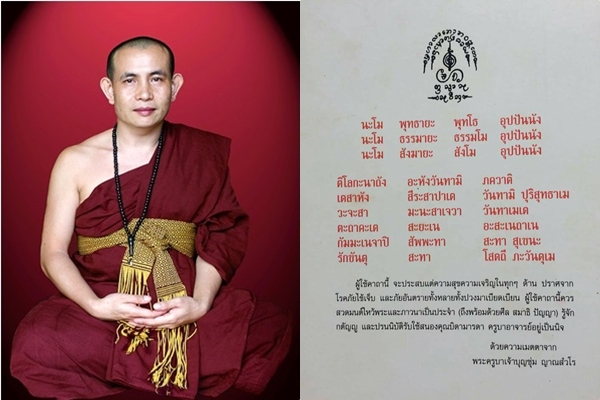 นะโม พุทธายะ พุทโธ อุปปันนัง
นะโม ธรรมายะ ธรรมโม อุปปันนัง
นะโม สังมายะ สังโม อุปปันนัง
ติโลกะนาถัง อะหังวันทามิ ภควาติ
เดสาหัง สีระสาปาเด วันทามิ ปุริสุทธาเม
วะจะสา มะนะสาเจวา วันทาเมเต
ตะถาคะเต สะยะเน อะสะเนถาเน
กัมมะเนจาปิ สัพพะทา สะทา สุเขนะ
รักขันตุ สะทา โสตถี ภะวันตุเม
ผู้ใช้คาถานี้ จะประสบแต่ความสุขความเจริญในทุกๆ ด้าน ปราศจาก
โรคภัยไข้เจ็บ และภัยอันตรายทั้งหลายทั้งปวงมาเบียดเบียน ผู้ใช้คาถานี้ควร
สวดมนต์ไหว้พระและภาวนาเป็นประจำ (ถึงพร้อมด้วยศีล สมาธิ ปัญญา) รู้จัก
กตัญญู และปรนนิบัติรับใช้สนองคุณบิดามารดา ครูบาอาจารย์อยู่เป็นนิจ
ด้วยความเมตตาจาก
พระครูบาเจ้าบุญชุ่ม ญาณสํวโร